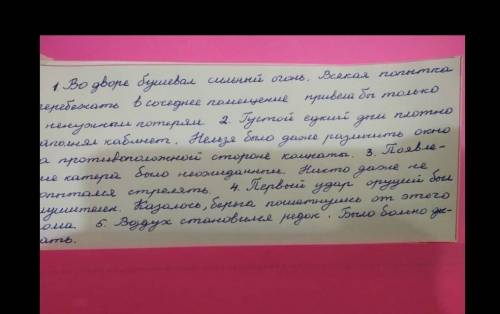 1. Во дворе бушевал сильный огонь. Всякая попытка
перебежать в соседнее помещение привела бы только
ненужным потерям 2. Густой едкий дым плотно
аполнял кабинет. Нельзя было даже различить окно
а противоположной стороне комнаты. 3. Появле-
ие катера было неожиданным. Никто даже не
опытался стрелять. 4. Первый удар орудий был
лушителен. Казалось, берега пошатнулись от этого
ома. 5. Воздух становился редок. Было больно ды-
ать.